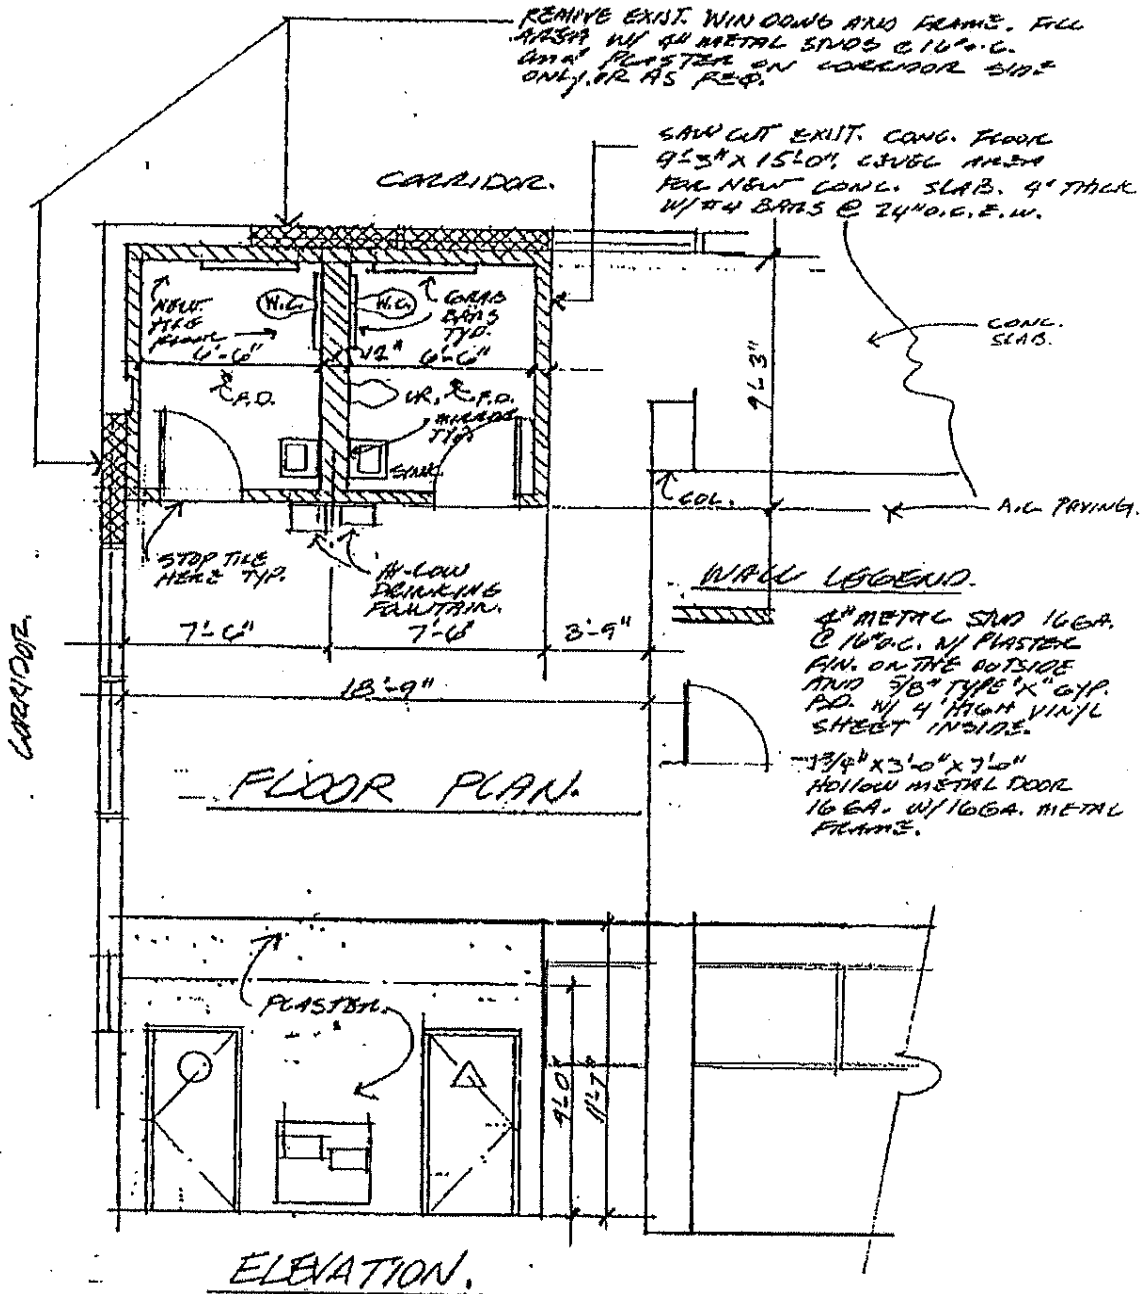 REMOVE EXIST. WINDOWS AND FRAME. FILL
AREA W/ 4" METAL STUDS @ 16" O.C.
PLASTER ON CORRIDOR SIDE
ONLY. OR AS REQ.
SAW CUT EXIST. CONC. FLOOR
9'-3" X 15'-0", LEVEL AREA
FOR NEW CONC. SLAB. 4" THICK
W/ #4 BARS @ 24" O.C. E.W.
CORRIDOR.
NEW
TILE
FLOOR
W.C.
W.C.
GRAB
BARS
TYP.
6'-6"
12"
6'-6"
9'-3"
CONC.
SLAB.
F.D.
UR.
F.D.
MIRROR
TYP.
SINK
COL.
A.C. PAVING.
STOP TILE
HERE TYP.
HI-LOW
DRINKING
FOUNTAIN.
WALL LEGEND.
4" METAL STUD 16GA.
@ 16" O.C. W/ PLASTER
FIN. ON THE OUTSIDE
AND 5/8" TYPE "X" GYP.
BD. W/ 4' HIGH VINYL
SHEET INSIDE.
7'-6"
7'-6"
3'-9"
18'-9"
CORRIDOR.
1 3/4" X 3'-0" X 7'-0"
HOLLOW METAL DOOR
16 GA. W/ 16GA. METAL
FRAME.
FLOOR PLAN.
PLASTER.
9'-0"
11'-7"
ELEVATION.